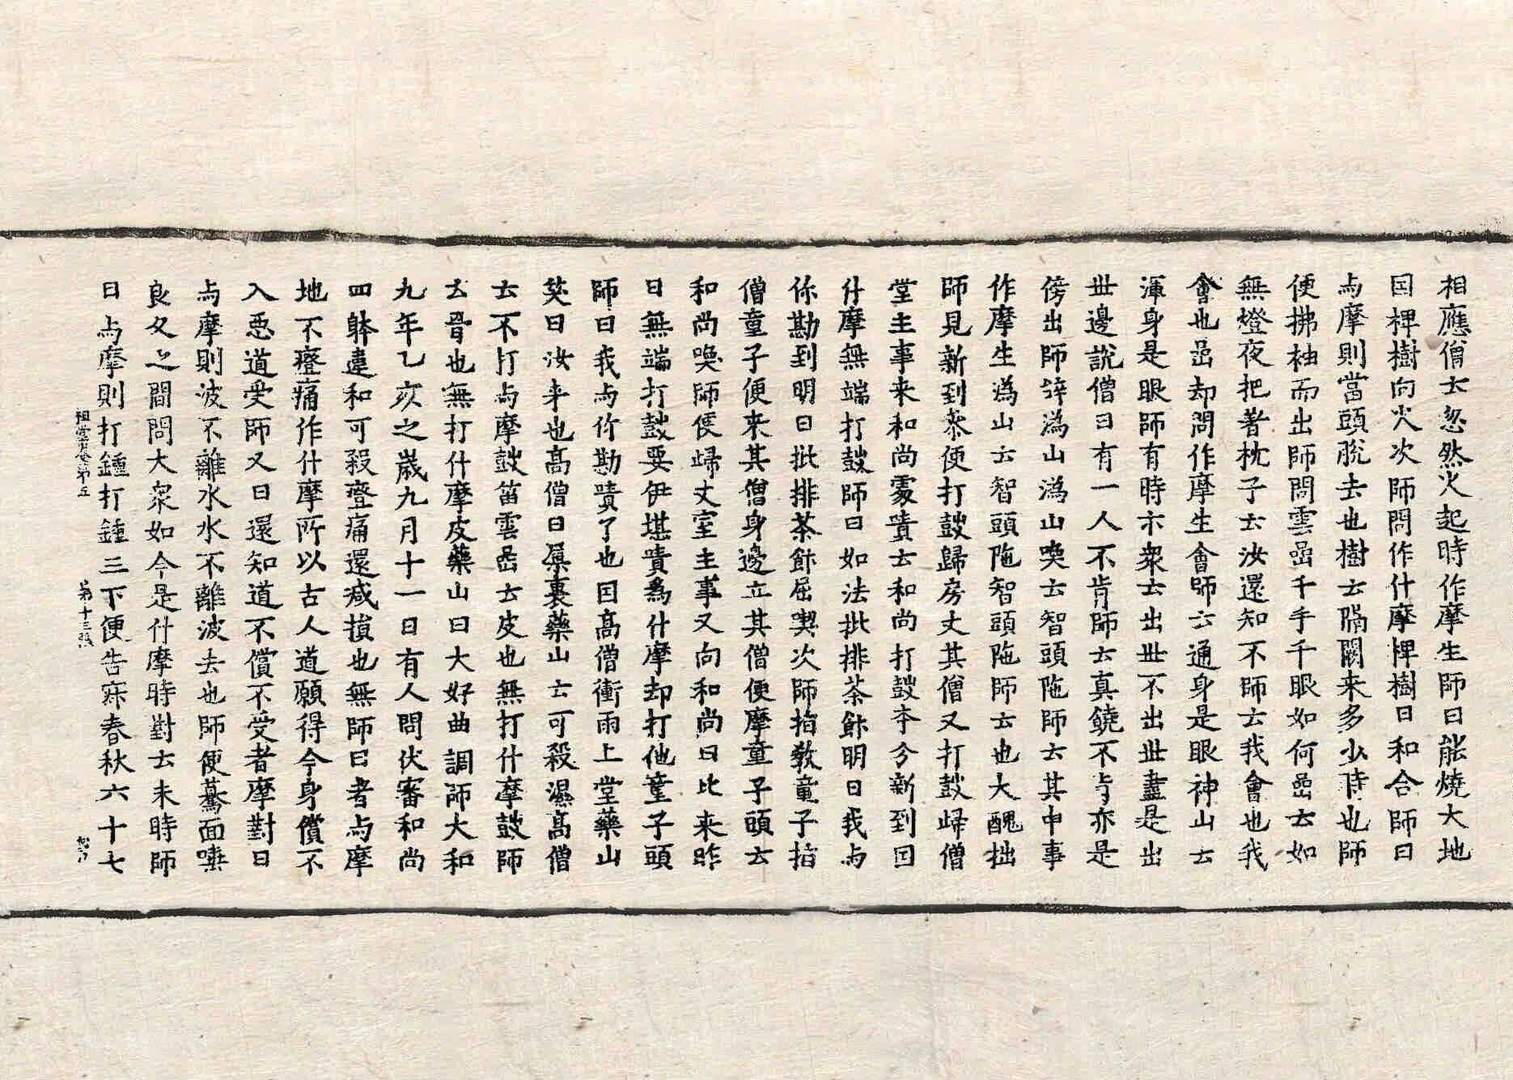 相應僧云忽然火起時作摩生師曰能燒大地
因椑樹向火次師問作什摩椑樹曰和合師曰
与摩則當頭脫去也樹云隔闊来多少時也師
便拂袖而出師問雲嵒千手千眼如何嵒云如
無燈夜把著枕子云汝還知不師云我會也我
會也嵒却問作摩生會師云通身是眼神山云
渾身是眼師有時示衆云出世不出世盡是出
世邊說僧曰有一人不肯師云真饒不肯亦是
傍出師辞溈山溈山喚云智頭陁師云其中事
作摩生溈山云智頭陁智頭陁師云也大醜拙
師見新到叅便打鼓歸房丈其僧又打鼓歸僧
堂主事来和尚處嘖云和尚打鼓夲分新到因
什摩無端打鼓師曰如法批排茶飰明日我与
你勘到明日批排茶飰屈喫次師指教童子指
僧童子便来其僧身邊立其僧便摩童子頭云
和尚喚師便歸丈室主事又向和尚曰比来昨
日無端打鼓要伊堪嘖爲什摩却打他童子頭
師曰我与你勘嘖了也因高僧衝雨上堂藥山
笑曰汝来也高僧曰屎裏藥山云可殺濕高僧
云不打与摩鼓笛雲嵒云皮也無打什摩鼓師
云骨也無打什摩皮藥山曰大好曲調師大和
九年乙亥之歲九月十一日有人問伏審和尚
四躰違和可殺㾊痛還減損也無師曰者与摩
地不㾊痛作什摩所以古人道願得今身償不
入惡道受師又曰還知道不償不受者摩對曰
与摩則波不離水水不離波去也師便驀面唾
良久之間問大衆如今是什摩時對云未時師
曰与摩則打鍾打鍾三下便告寂春秋六十七
祖堂集卷第五 第十三張